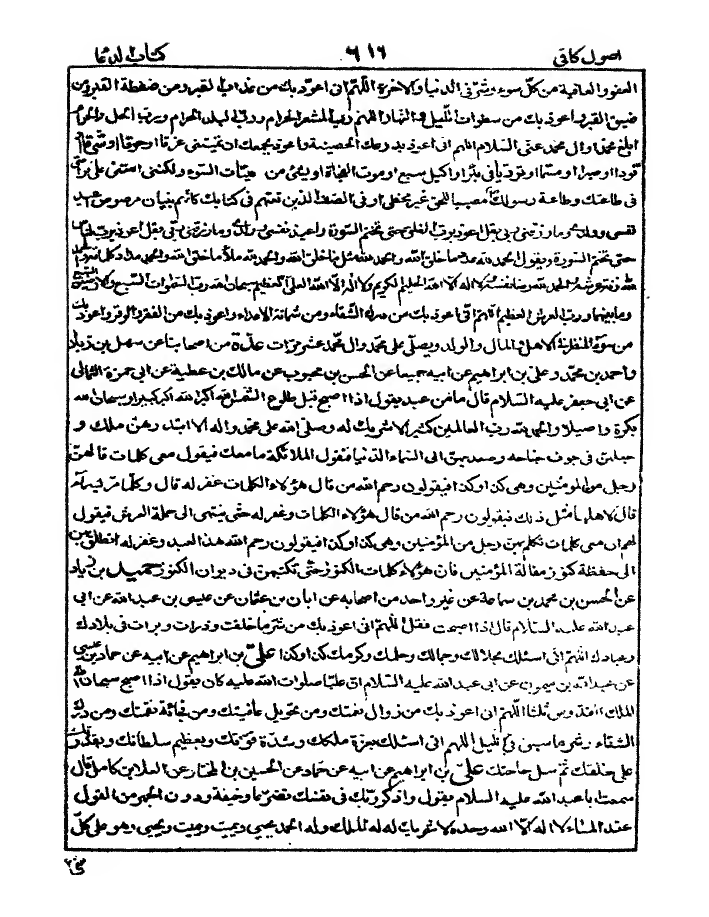 اصول كافي ٦١٦ كتاب الدعا
العفو والعافية من كلّ سوء وشرّ في الدنيا والاخرة اللّهمّ انى اعوذ بك من عذاب القبر ومن ضغطة القبر ومن
ضيق القبر واعوذ بك من سطوات اللّيل والنّهار اللهمّ ربّ المشعر الحرام وربّ البلد الحرام وربّ الحلّ والحرام
ابلغ محمّدا وال محمّد عنّى السّلام اللهم انى اعوذ بدرعك الحصينة واعوذ بجمعك ان تميتنى غرقا او حرقا او شرقا
قودا او صبرا او مسمّا او تردّيا في بئر او اكيل سبع او موت الفجأة او بشئ من ميتات السّوء ولكنى امتنى على فراشى
في طاعتك وطاعة رسولك مصيبا للحق غير مخطئ او في الصّف الذين نعتهم في كتابك كأنّهم بنيان مرصوص اعيذ
نفسى وولدى وما رزقنى ربى بقل اعوذ بربّ الفلق حتى تختم السّورة واعيذ نفسى وولدى وما رزقنى ربّى بقل اعوذ بربّ الناس
حتى تختم السّورة ويقول الحمد لله عدد ما خلق الله والحمد لله مثل ما خلق الله والحمد لله ملأ ما خلق الله والحمد لله مداد كلماته
لله زنة عرشه والحمد لله رضا نفسه لا اله الّا الله الحليم الكريم ولا اله الّا الله العلىّ العظيم سبحان الله ربّ السّموات السّبع والارضين
وما بينهما وربّ العرش العظيم اللّهمّ انّى اعوذ بك من درك الشقاء ومن شماتة الاعداء واعوذ بك من الفقر والوقر واعوذ بك
من سوء المنظر في الاهل والمال والولد ويصلّى على محمّد وال محمّد عشر مرّات عدّة من اصحابنا عن سهل بن زياد
واحمد بن محمّد وعلى بن ابراهيم عن ابيه جميعا عن الحسن بن محبوب عن مالك بن عطية عن ابى حمزة الثمالى
عن ابى جعفر عليه السّلام قال ما من عبد يقول اذا اصبح قبل طلوع الشمس الله اكبر الله اكبر كبيرا وسبحان الله
بكرة واصيلا والحمد لله ربّ العالمين كثيرا لا شريك له وصلّى الله على محمّد واله الّا ابتدرهنّ ملك و
جعلهنّ في جوف جناحه وصعد بهنّ الى السّماء الدّنيا فتقول الملائكة ما معك فيقول معى كلمات قالهنّ
رجل من المؤمنين وهى كذا وكذا فيقولون رحم الله من قال هؤلاء الكلمات وغفر له قال وكلّما مرّ بسماء
قال لاهلها مثل ذلك فيقولون رحم الله من قال هؤلاء الكلمات وغفر له حتّى ينتهى الى حملة العرش فيقول
لهم ان معى كلمات تكلّم بهنّ رجل من المؤمنين وهى كذا وكذا فيقولون رحم الله هذا العبد وغفر له انطلق بهنّ
الى حفظة كنوز مقالة المؤمنين فان هؤلاء كلمات الكنوز حتّى تكتبهنّ في ديوان الكنوز حميد بن زياد
عن الحسن بن محمد بن سماعة عن غير واحد من اصحابه عن ابان بن عثمان عن عيسى بن عبدالله عن ابى
عبدالله عليه السّلام قال اذا اصبحت فقل اللّهمّ انى اعوذ بك من شرّ ما خلقت وذرات وبرات في بلادك
وعبادك اللّهمّ انى اسئلك بجلالك وجمالك وحلمك وكرمك كذا وكذا علىّ بن ابراهيم عن ابيه عن حماد بن عيسى
عن عبدالله بن ميمون عن ابى عبدالله عليه السّلام انّ عليّا صلوات الله عليه كان يقول اذا اصبح سبحان الله
الملك القدّوس ثلثا اللّهمّ انى اعوذ بك من زوال نعمتك ومن تحويل عافيتك ومن فجأة نقمتك ومن درك
الشقاء ومن شرّ ما سبق في اللّيل اللهم انى اسئلك بعزّة ملكك وشدّة قوّتك وبعظيم سلطانك وبقدرتك
على خلقك ثمّ سل حاجتك علىّ بن ابراهيم عن ابيه عن حمّاد عن الحسين بن المختار عن العلا بن كامل قال
سمعت ابا عبدالله عليه السّلام يقول واذكر ربّك في نفسك تضرّعا وخيفة ودون الجهر من القول
عند المساء لا اله الّا الله وحده لا شريك له له الملك وله الحمد يحيى ويميت ويميت ويحيى وهو على كلّ